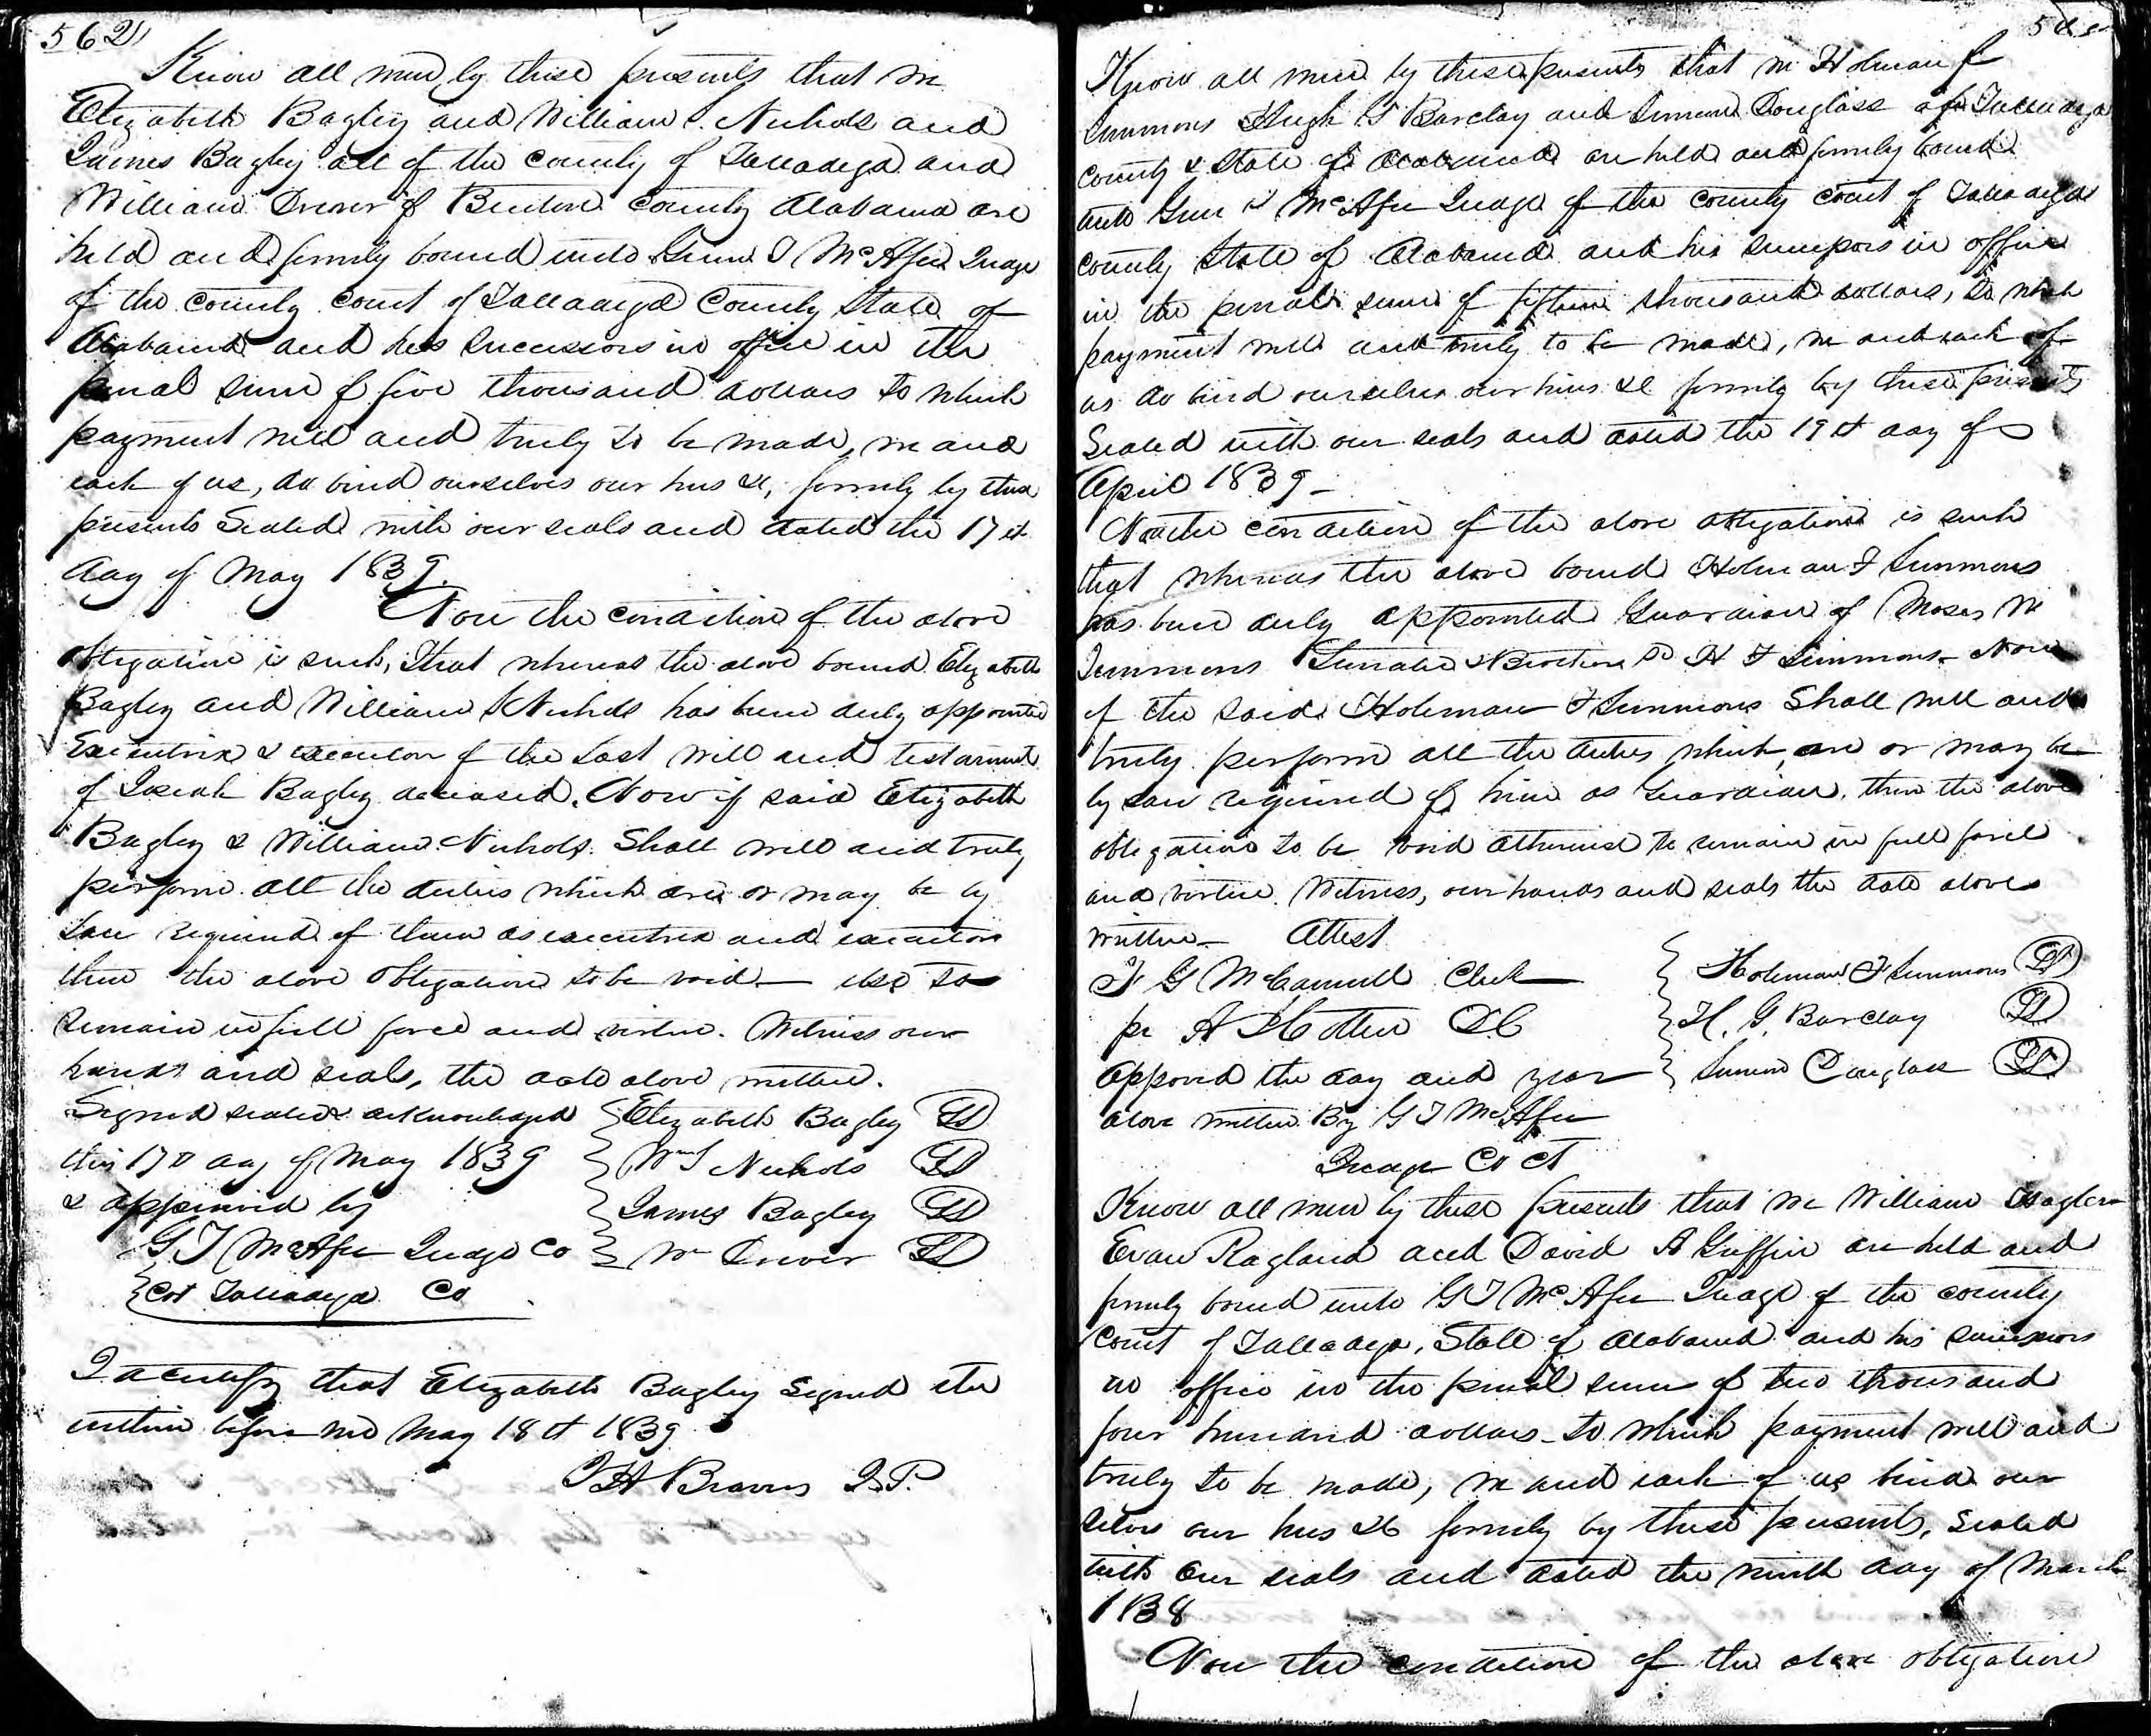 562
Know all men by these presents that we
Elizabeth Bagley and William S. Nichols and
James Bagley all of the county of Talladega and
William Driver of Benton County Alabama are
held and firmly bound unto Green T McAfee Judge
of the County Court of Talladega County State of
Alabama and his successors in office in the
penal sum of five thousand dollars to which
payment well and truly to be made, we and
each of us, do bind ourselves our heirs &c, firmly by these
presents Sealed with our seals and dated the 17th
day of May 1839.
Now the condition of the above
obligation is such, that whereas the above bound Elizabeth
Bagley and William S Nichols has been duly appointed
Executrix & executor of the Last will and testament
of Josiah Bagley deceased. Now if said Elizabeth
Bagley & William Nichols. Shall well and truly
perform all the duties which are or may be by
Law required of them as executrix and executor
then the above obligation to be void — else to
remain in full force and virtue. Witness our
hands and seals, the date above written.
Signed sealed & acknowledged Elizabeth Bagley LS
this 17th day of May 1839 Wm S Nichols LS
& approved by James Bagley LS
G T McAfee Judge Co Wm Driver LS
Cort Talladega Co
I certify that Elizabeth Bagley Signed the
within before me May 18th 1839
J.P.
Know all men by these presents that we Holman F
Simmons Hugh G Barclay and Simeon Douglass of Talladega
County & State of Alabama are held and firmly bound
unto Green T McAfee Judge of the county court of Talladega
County State of Alabama and his successors in office
in the penal sum of fifteen thousand dollars, to which
payment well and truly to be made, we and each of
us do bind ourselves our heirs &c firmly by these presents
Sealed with our seals and dated the 19th day of
April 1839 -
Now the condition of the above obligation is such
that whereas the above bound Holman F Simmons
has been duly appointed Guardian of Moses W
Simmons Lunatic & Brother to H F Simmons - Now
if the said Holman F Simmons Shall well and
truly perform all the duties which are or may be
by law required of him as Guardian, then the above
obligation to be void otherwise to remain in full force
and virtue. Witness, our hands and seals the date above
written - Attest
G McConnell Clerk Holman F Simmons LS
pr A DC H. G. Barclay LS
Approved the day and year Simeon Douglass LS
above written By G T McAfee
Judge Co Ct
Know all men by these presents that we William
Evan Ragland and David A Griffin are held and
firmly bound unto G T McAfee Judge of the county
Court of Talladega, State of Alabama and his successors
in office in the penal sum of two thousand
four hundred dollars - to which payment well and
truly to be made, we and each of us bind our
selves our heirs &c firmly by these presents, Sealed
with our seals and dated the ninth day of March
1838
Now the condition of the above obligation